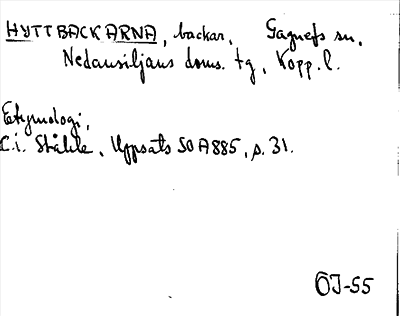 HYTTBACKARNA, backar, Gagnefs sn,
Nedansiljans doms. tg, Kopp. l.
Etymologi,
C.i. Ståhle, Uppsats SOA885, s. 31.
ÖJ-55